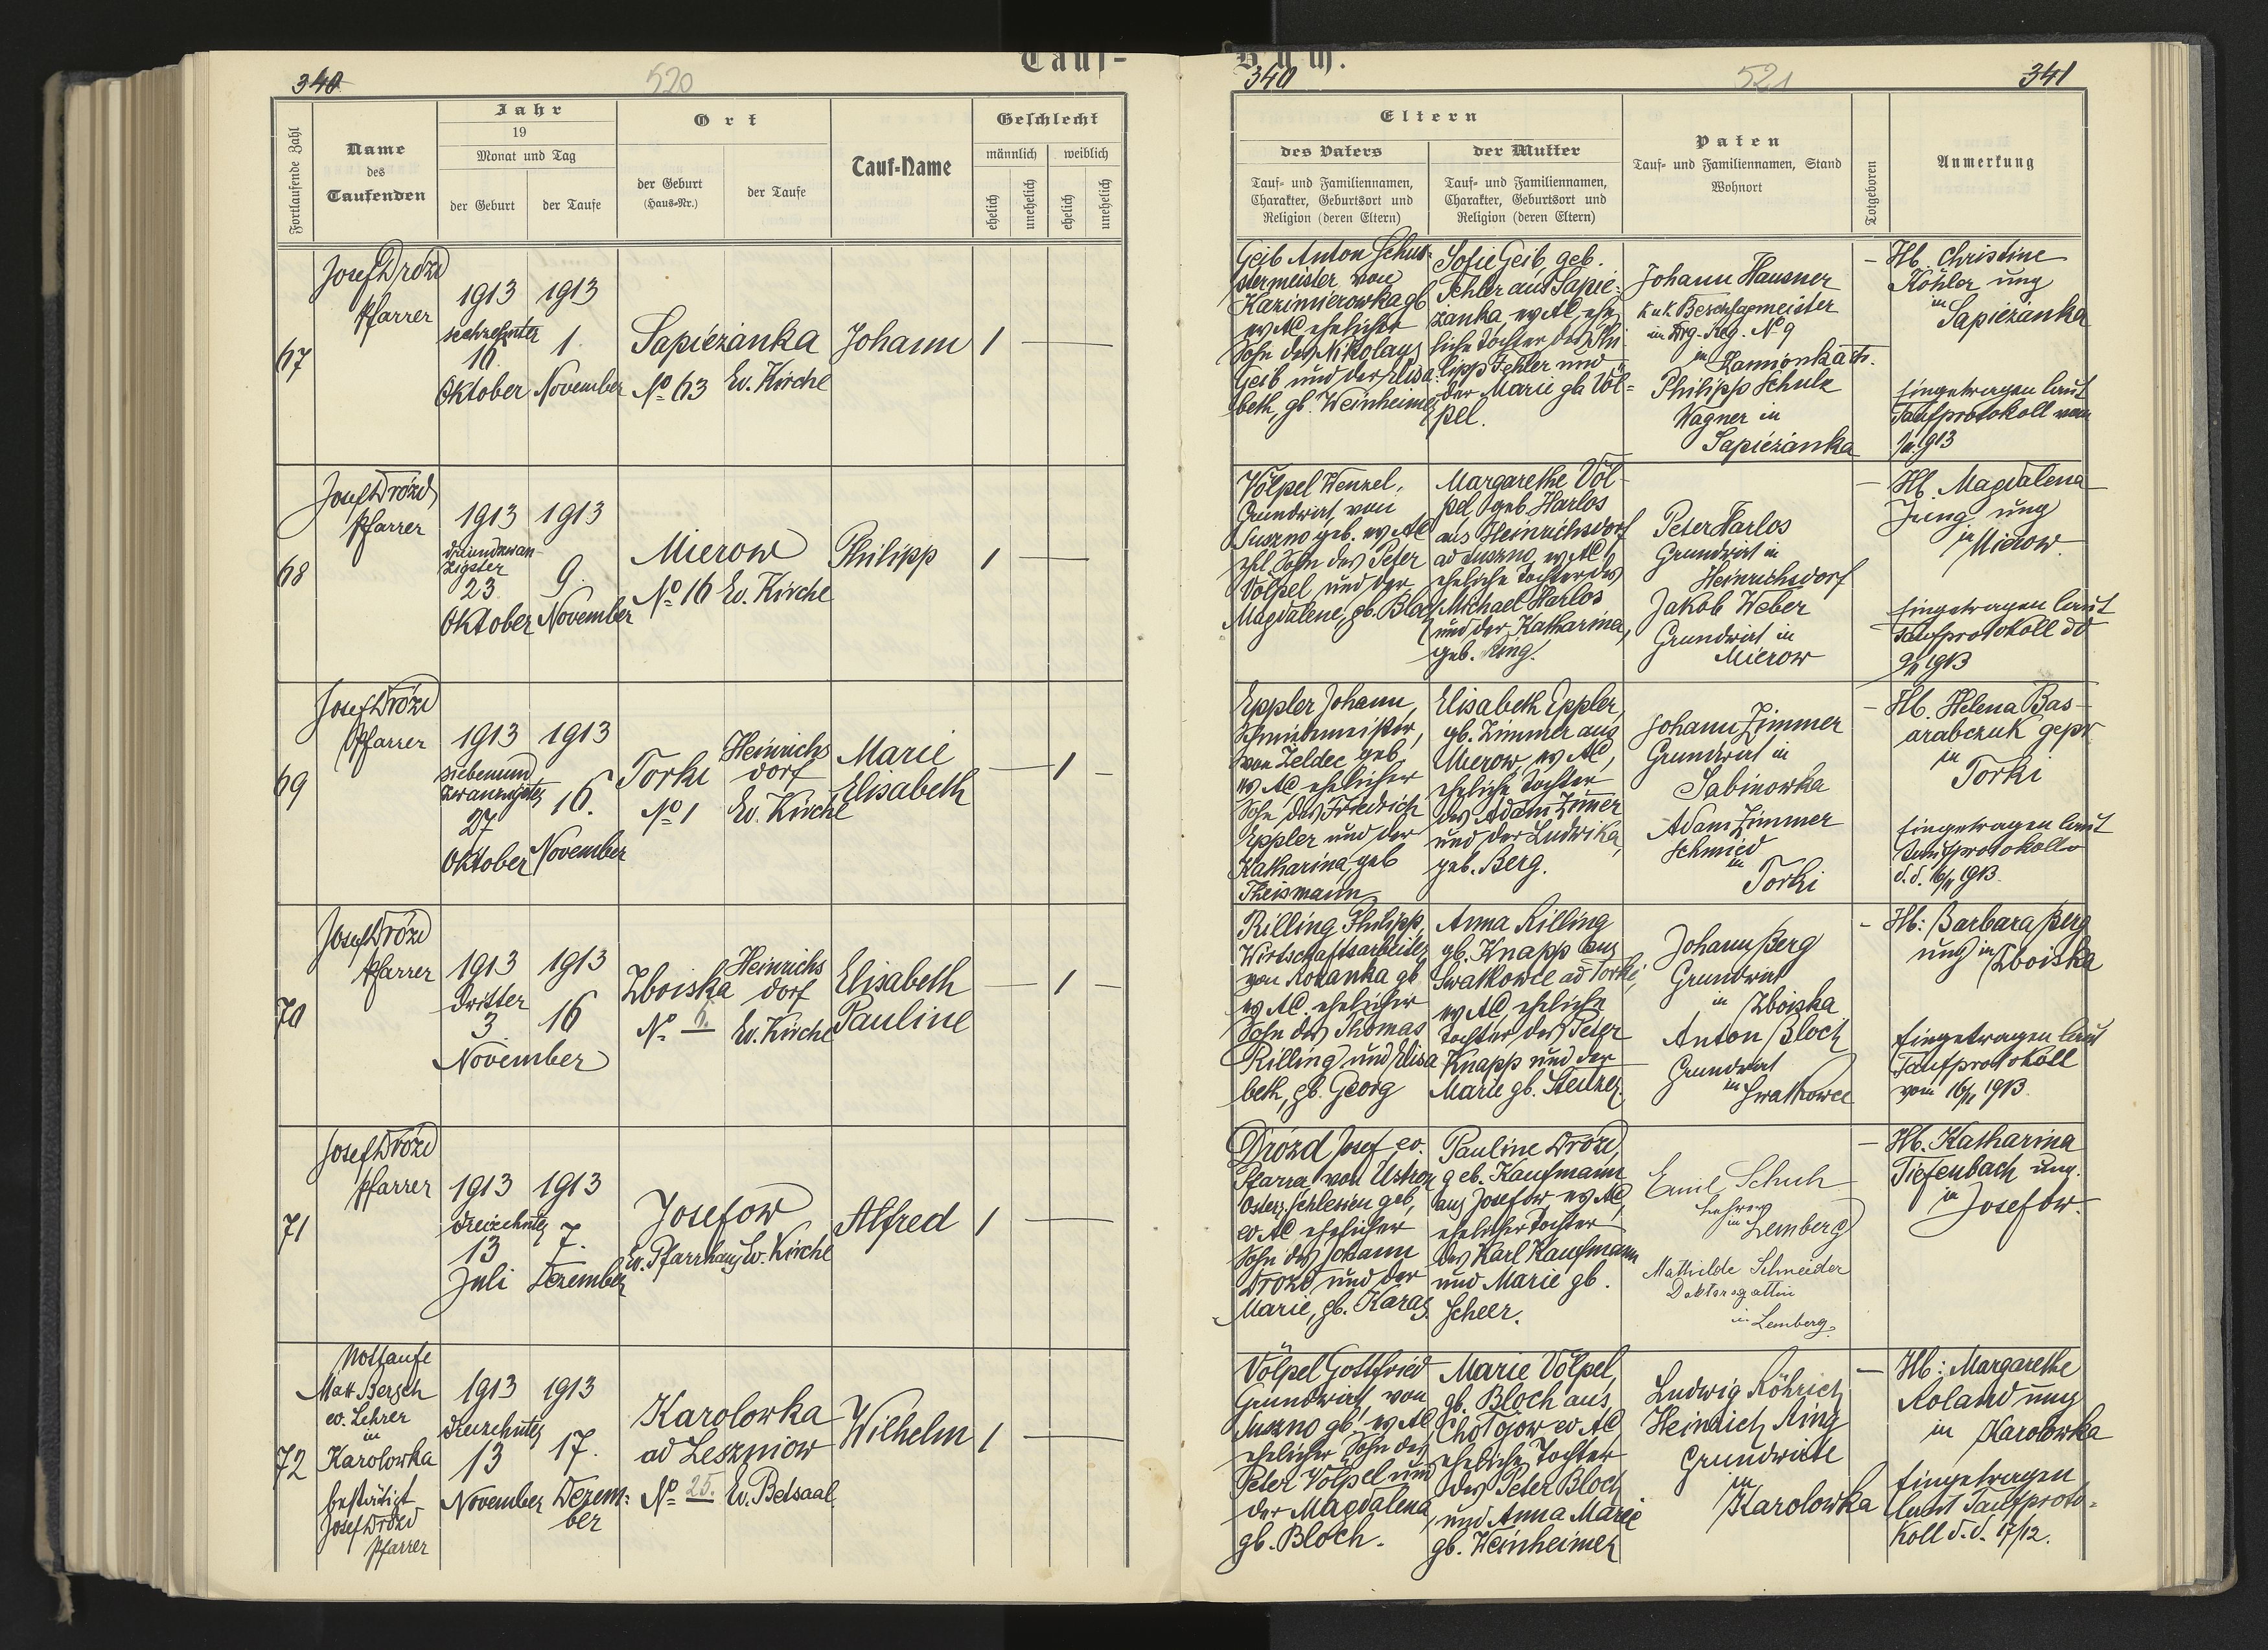 Tauf-
Buch.
340
520
340
521
341
Fortlaufende Zahl
Name
des
Taufenden
Jahr
19
Monat und Tag
der Geburt
der Taufe
Ort
der Geburt
(Haus-Nr.)
der Taufe
Tauf-Name
Geschlecht
männlich
weiblich
ehelich
unehelich
ehelich
unehelich
Eltern
des Vaters
Tauf- und Familiennamen,
Charakter, Geburtsort und
Religion (deren Eltern)
der Mutter
Tauf- und Familiennamen,
Charakter, Geburtsort und
Religion (deren Eltern)
Paten
Tauf- und Familiennamen, Stand
Wohnort
Totgeboren
Anmerkung
67
Josef Drózd
Pfarrer
1913
sechzehnter
16.
Oktober
1913
1.
November
Sapiezanka
No 63
Ev. Kirche
Johann
1 — —
Geib Anton Schus-
stermeister von
Kazimierowka gb
ev AC ehelicher
Sohn des Nikolaus
Geib und der Elisa-
beth, gb. Weinheimer
Sofie Geib, geb.
Fehler aus Sapie-
zanka, ev AC, ehe
liche Tochter des Phi
lipp Fehler und
der Marie gb Völ-
pel.
Johann Hausner
k u k Beschlagmeister
im Drg. Reg. No 9
in Kamionka str.
Philipp Schulz
Wagner in
Sapiezanka
—
Hb. Christine
Köhler ung
in
Sapiezanka
Eingetragen laut
Taufprotokoll vom
1/11 1913
68
Josef Drózd
Pfarrer
1913
dreiundzwan-
zigster
23.
Oktober
1913
9.
November
Mierow
No 16
Ev. Kirche
Philipp
1 —
Völpel Wenzel,
Grundwirt von
Suszno geb. ev AC
ehl Sohn des Peter
Völpel und der
Magdalene, gb. Bloch
Margarethe Völ-
pel geb Harlos
aus Heinrichsdorf
ad Suszno, ev AC,
eheliche Tochter des
Michael Harlos
und der Katharina,
geb. Ring.
Peter Harlos
Grundwirt in
Heinrichsdorf
Jakob Weber
Grundwirt in
Mierow
—
Hb. Magdalena
Jung ung
in
Mierow.
Eingetragen laut
Taufprotokoll dd
9/11 1913
69
Josef Drózd
Pfarrer
1913
siebenund
zwanzigster
27
Oktober
1913
16.
November
Torki
No 1
Heinrichs
dorf
Ev. Kirche
Marie
Elisabeth
— 1 —
Eppler Johann,
Schmiedmeister,
von Zeldec geb,
ev AC ehelicher
Sohn des Friedrich
Eppler und der
Katharina, geb
Theismann
Elisabeth Eppler,
gb. Zimmer aus
Mierow, ev AC,
eheliche Tochter
des Adam Zimmer
und der Ludwika,
geb. Berg.
Johann Zimmer
Grundwirt in
Sabinowka
Adam Zimmer
Schmied
in
Torki
—
Hb. Helena Bas-
arabczuk gepr.
in
Torki
Eingetragen laut
Taufprotokolle
d.d. 16/11 1913.
70
Josef Drózd
Pfarrer
1913
dritter
3.
November
1913
16
Zboiska
No
Heinrichs
dorf
Ev. Kirche
Elisabeth
Pauline
— 1 —
Rilling Philipp,
Wirtschaftsarbeiter
von Rozanka gb
ev AC. ehelicher
Sohn des Thomas
Rilling und Elisa
beth, gb. Georg
Anna Rilling
gb. Knapp aus
Swatkowce ad Torki,
ev AC, eheliche
Tochter des Peter
Knapp und der
Marie gb.
Johann Berg
Grundwirt
in Zboiska
Anton Bloch
Grundwirt
in Swatkowce
-
Hb: Barbara Berg
ung in Zboiska
Eingetragen laut
Taufprotokoll
vom 16/11 1913.
71
Josef Drózd
Pfarrer
1913
dreizehnter
13
Juli
1913
7.
Dezember
Josefow
Ev. Pfarrhaus
Ev. Kirche
Alfred
1 —
Drózd Josef, ev.
Pfarrer von Ustron
Österr. Schlesien geb,
ev AC ehelicher
Sohn des Johann
Drózd und der
Marie, gb. Karas.
Pauline Drózd,
geb. Kaufmann
aus Josefow ev AC,
ehelicher Tochter
des Karl Kaufmann
und Marie gb.
Scheer.
Emil Schuh
Lehrer
in Lemberg
Mathilde Schneider
Doktorsgattin
in Lemberg.
—
Hb. Katharina
Tiefenbach ung.
in
Josefow.
72
Nottaufe
Matt Bersch
ev. Lehrer
in
Karolowka
bestätigt
Josef Drózd
Pfarrer
1913
dreizehnter
13
November
1913
17.
Dezem-
ber
Karolowka
ad Leszniow
No 25.
Ev. Betsaal
Wilhelm
1 —
Völpel Gottfried
Grundwirt, von
Suszno gb. ev AC
ehelicher Sohn des
Peter Völpel und
der Magdalena
gb. Bloch.
Marie Völpel,
gb. Bloch aus
Chołojow ev AC,
eheliche Tochter
des Peter Bloch
und Anna Marie
gb. Weinheimer
Ludwig Röhrich
Heinrich Ring
Grundwirte
in
Karolowka
—
Hb: Margarethe
Roland ung
in Karolowka
Eingetragen
laut Taufproto-
koll d.d. 17/12.